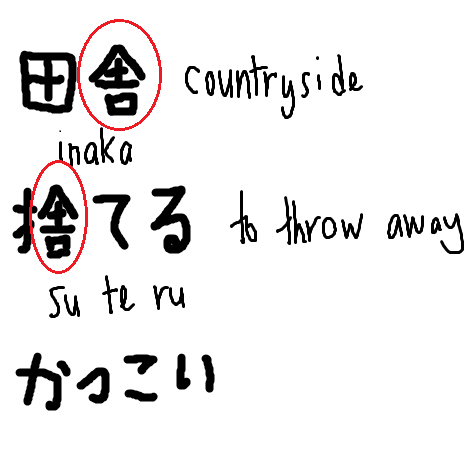 田舎 countryside
inaka
捨てる to throw away
su te ru
かっこい